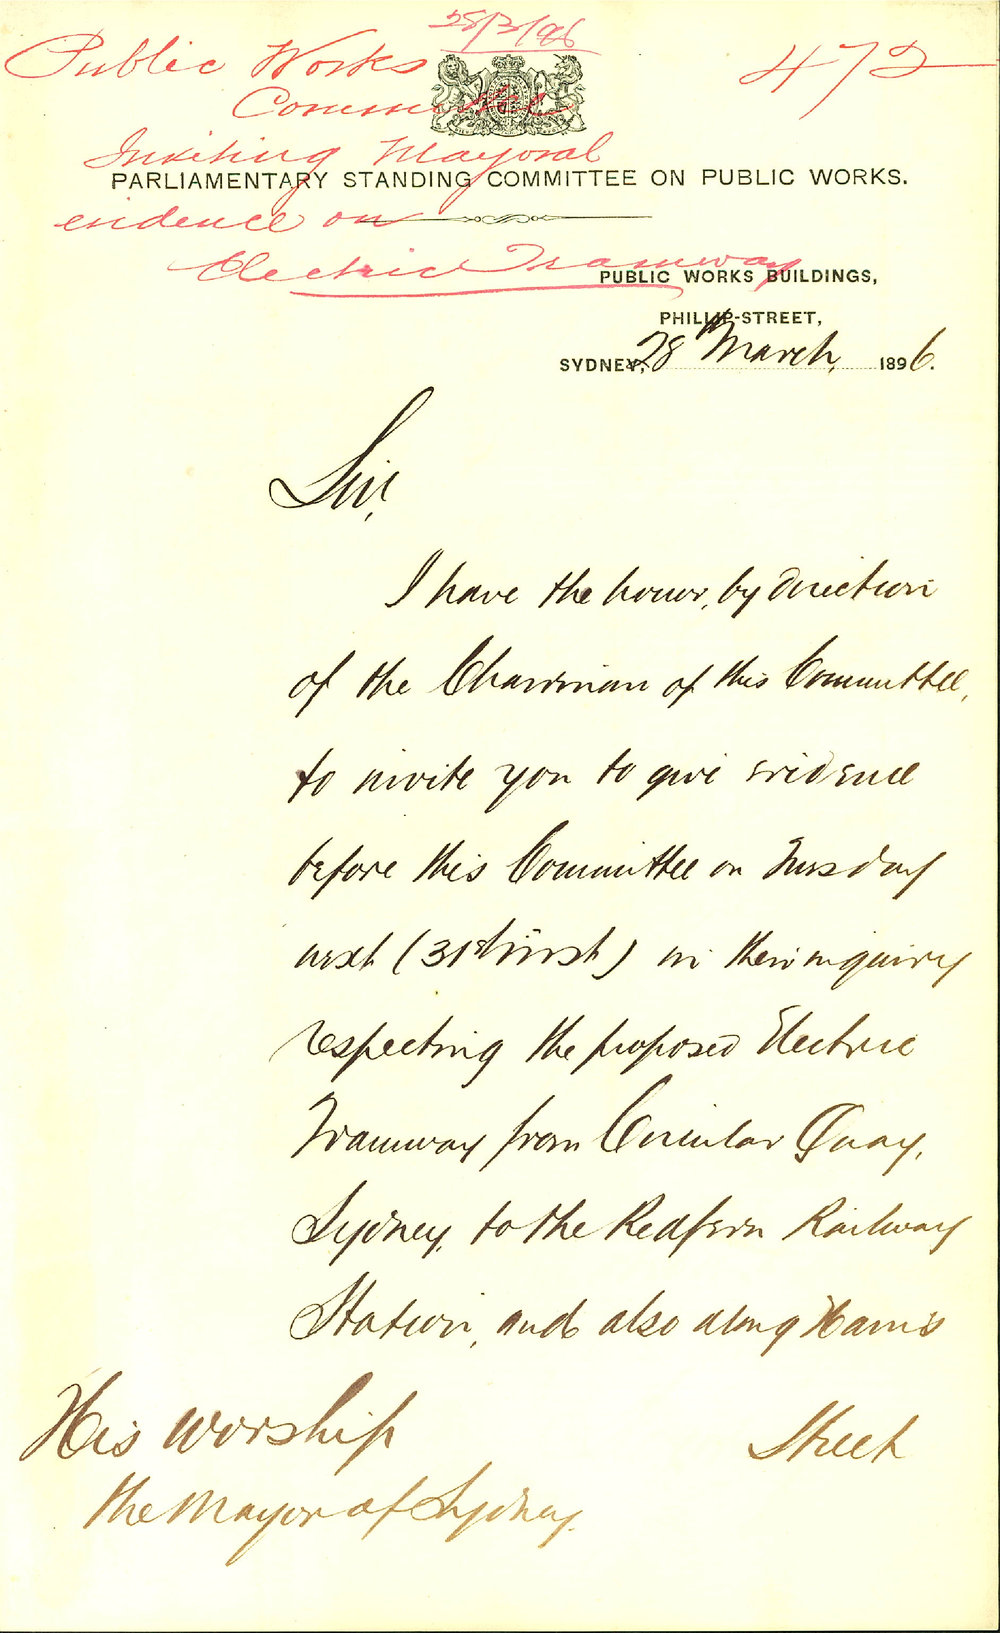 28/3/96
Public Works
Committee
472
Inviting Mayoral
PARLIAMENTARY STANDING COMMITTEE ON PUBLIC WORKS.
evidence on
Electric Tramway
PUBLIC WORKS BUILDINGS,
PHILLIP-STREET,
SYDNEY, 28 March, 1896.
Sir,
I have the honor, by direction
of the Chairman of this Committee,
to invite you to give evidence
before this Committee on Tuesday
next (31st inst) in their inquiry
respecting the proposed Electric
Tramway from Circular Quay,
Sydney, to the Redfern Railway
Station, and also along Harris
Street
His Worship
the Mayor of Sydney.